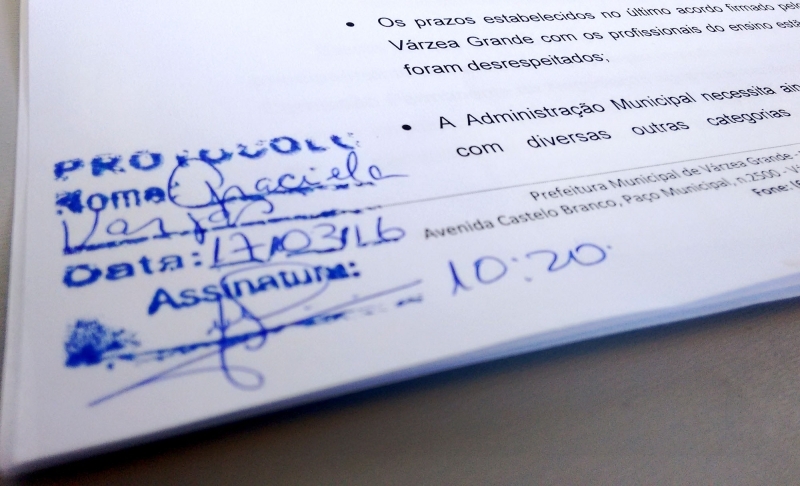 Os prazos estabelecidos no último acordo firmado pel
Várzea Grande com os profissionais do ensino est
foram desrespeitados;
A Administração Municipal necessita ain
com diversas outras categorias
PROTOCOLO
Nome: Graciela
Data: 17/03/16
Assinatura:
10:20
Prefeitura Municipal de Várzea Grande -
Avenida Castelo Branco, Paço Municipal, n.2500 - V
Fone: